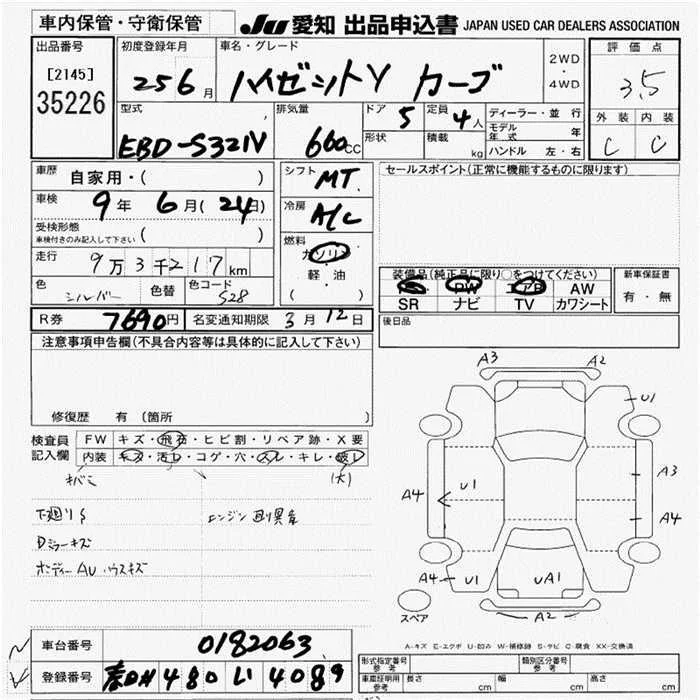 車内保管・守衛保管 JU 愛知 出品申込書 JAPAN USED CAR DEALERS ASSOCIATION
出品番号 初度登録年月 車名・グレード 評価点
[2145] 25 6月 ハイゼットV カーゴ 2WD・4WD 3.5
35226
型式 排気量 ドア 定員 ディーラー・並行 外装 内装
EBD-S321V 660cc 5 4人 モデル年式 年 C C
形状 積載 kg ハンドル 左・右
車歴 自家用・( ) シフト MT. セールスポイント(正常に機能するものに限ります)
車検 9年 6月(24日) 冷房 A/C
受検形態
車検付きのみ記入して下さい ( ) 燃料 ガソリン
走行 9万3千217km 軽油 装備品(純正品に限り○をつけてください) 新車保証書
色 シルバー 色替 色コード S28 ( ) PW AW 有・無
SR ナビ TV カワシート
R券 7690円 名変通知期限 3月12日 後日品
注意事項申告欄(不具合内容等は具体的に記入して下さい)
A3 A2
U1
修復歴 有(箇所
検査員 FW キズ・飛石・ヒビ割・リペア跡・X要
記入欄 内装 キズ・汚レ・コゲ・穴・スレ・キレ・破レ
キバミ (大)
A4 U1 A3
下廻りS エンジン A4
Dミラーキズ
ボディーAU ハウスキズ
A4 U1 UA1
スペア A2
A-キズ E-エクボ U-凹み W-補修跡 S-サビ C-腐食 XX-交換済
車台番号 0182063
登録番号 480 い 4089
形式指定番号 参考 類別区分番号 参考
車庫証明用 参考 長さ cm 幅 cm 高さ cm